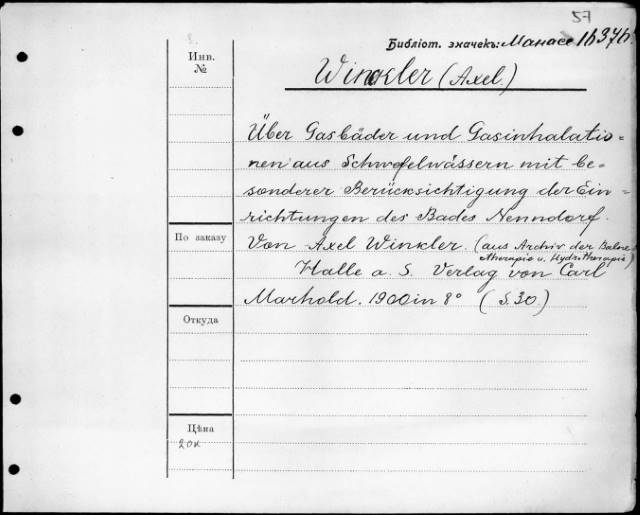 57
Библіот. значекъ: Манасе 16376
Инв.
№
Winkler (Axel.)
Über Gasbäder und Gasinhalatio=
nen aus Schwefelwässern mit be=
sonderer Berücksichtigung der Ein=
richtungen des Bades Nenndorf.
По заказу
Von Axel Winkler. (aus Archiv der Balneo
therapie u. Hydrotherapie)
Halle a. S. Verlag von Carl
Marhold. 1900 in 8° (S. 30.)
Откуда
Цѣна
20к